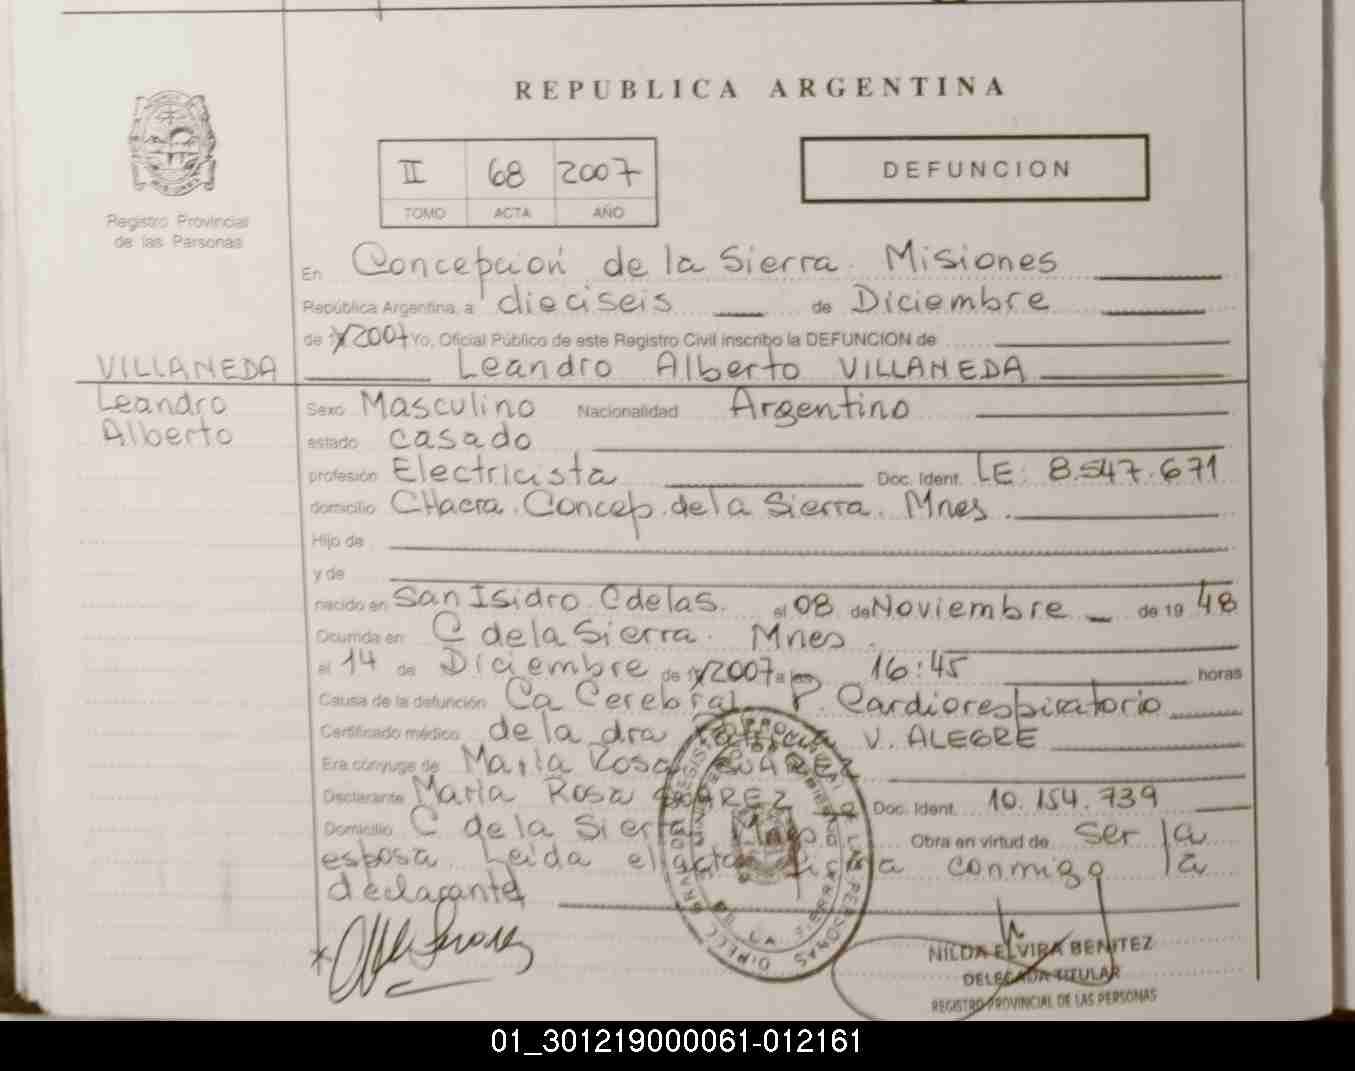 REPUBLICA ARGENTINA
II 68 2007
TOMO ACTA AÑO
DEFUNCION
Registro Provincial
de las Personas
En Concepción de la Sierra. Misiones
República Argentina, a dieciseis de Diciembre
de 2007 Yo, Oficial Público de este Registro Civil inscribo la DEFUNCION de
VILLANEDA
Leandro
Alberto
Leandro Alberto VILLANEDA
Sexo Masculino Nacionalidad Argentino
estado casado
profesión Electricista Doc. Ident. LE: 8.547.671
domicilio CHacra. Concep. de la Sierra. Mnes.
Hijo de
y de
nacido en San Isidro. C de la S. el 08 de Noviembre de 19 48
Ocurrida en C de la Sierra. Mnes.
el 14 de Diciembre de 2007 a las 16:45 horas
Causa de la defunción Ca Cerebral P. Cardiorespiratorio
Certificado médico de la dra V. ALEGRE
Era cónyuge de María Rosa SUAREZ
Declarante María Rosa SUAREZ Doc. Ident. 10.154.739
Domicilio C de la Sierra Mnes Obra en virtud de ser la
esposa. Leída el acta firma conmigo la
declarante
NILDA ELVIRA BENITEZ
DELEGADA TITULAR
REGISTRO PROVINCIAL DE LAS PERSONAS
01_301219000061-012161